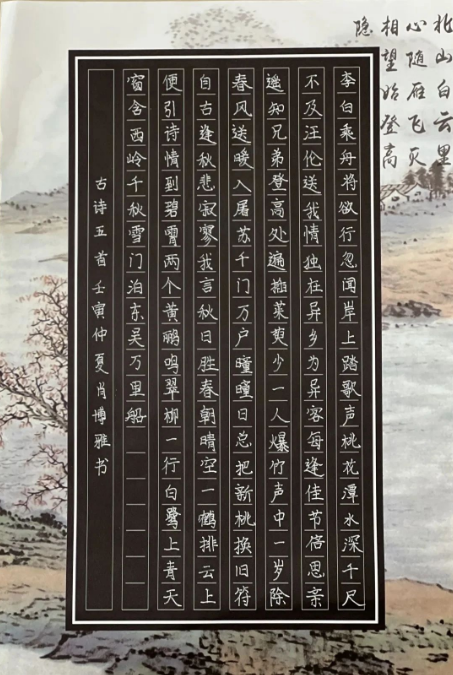 北山白云里
隐
心随雁飞灭
相望始登高
李白乘舟将欲行忽闻岸上踏歌声桃花潭水深千尺
不及汪伦送我情独在异乡为异客每逢佳节倍思亲
遥知兄弟登高处遍插茱萸少一人爆竹声中一岁除
春风送暖入屠苏千门万户曈曈日总把新桃换旧符
自古逢秋悲寂寥我言秋日胜春朝晴空一鹤排云上
便引诗情到碧霄两个黄鹂鸣翠柳一行白鹭上青天
窗含西岭千秋雪门泊东吴万里船
古诗五首壬寅仲夏肖博雅书